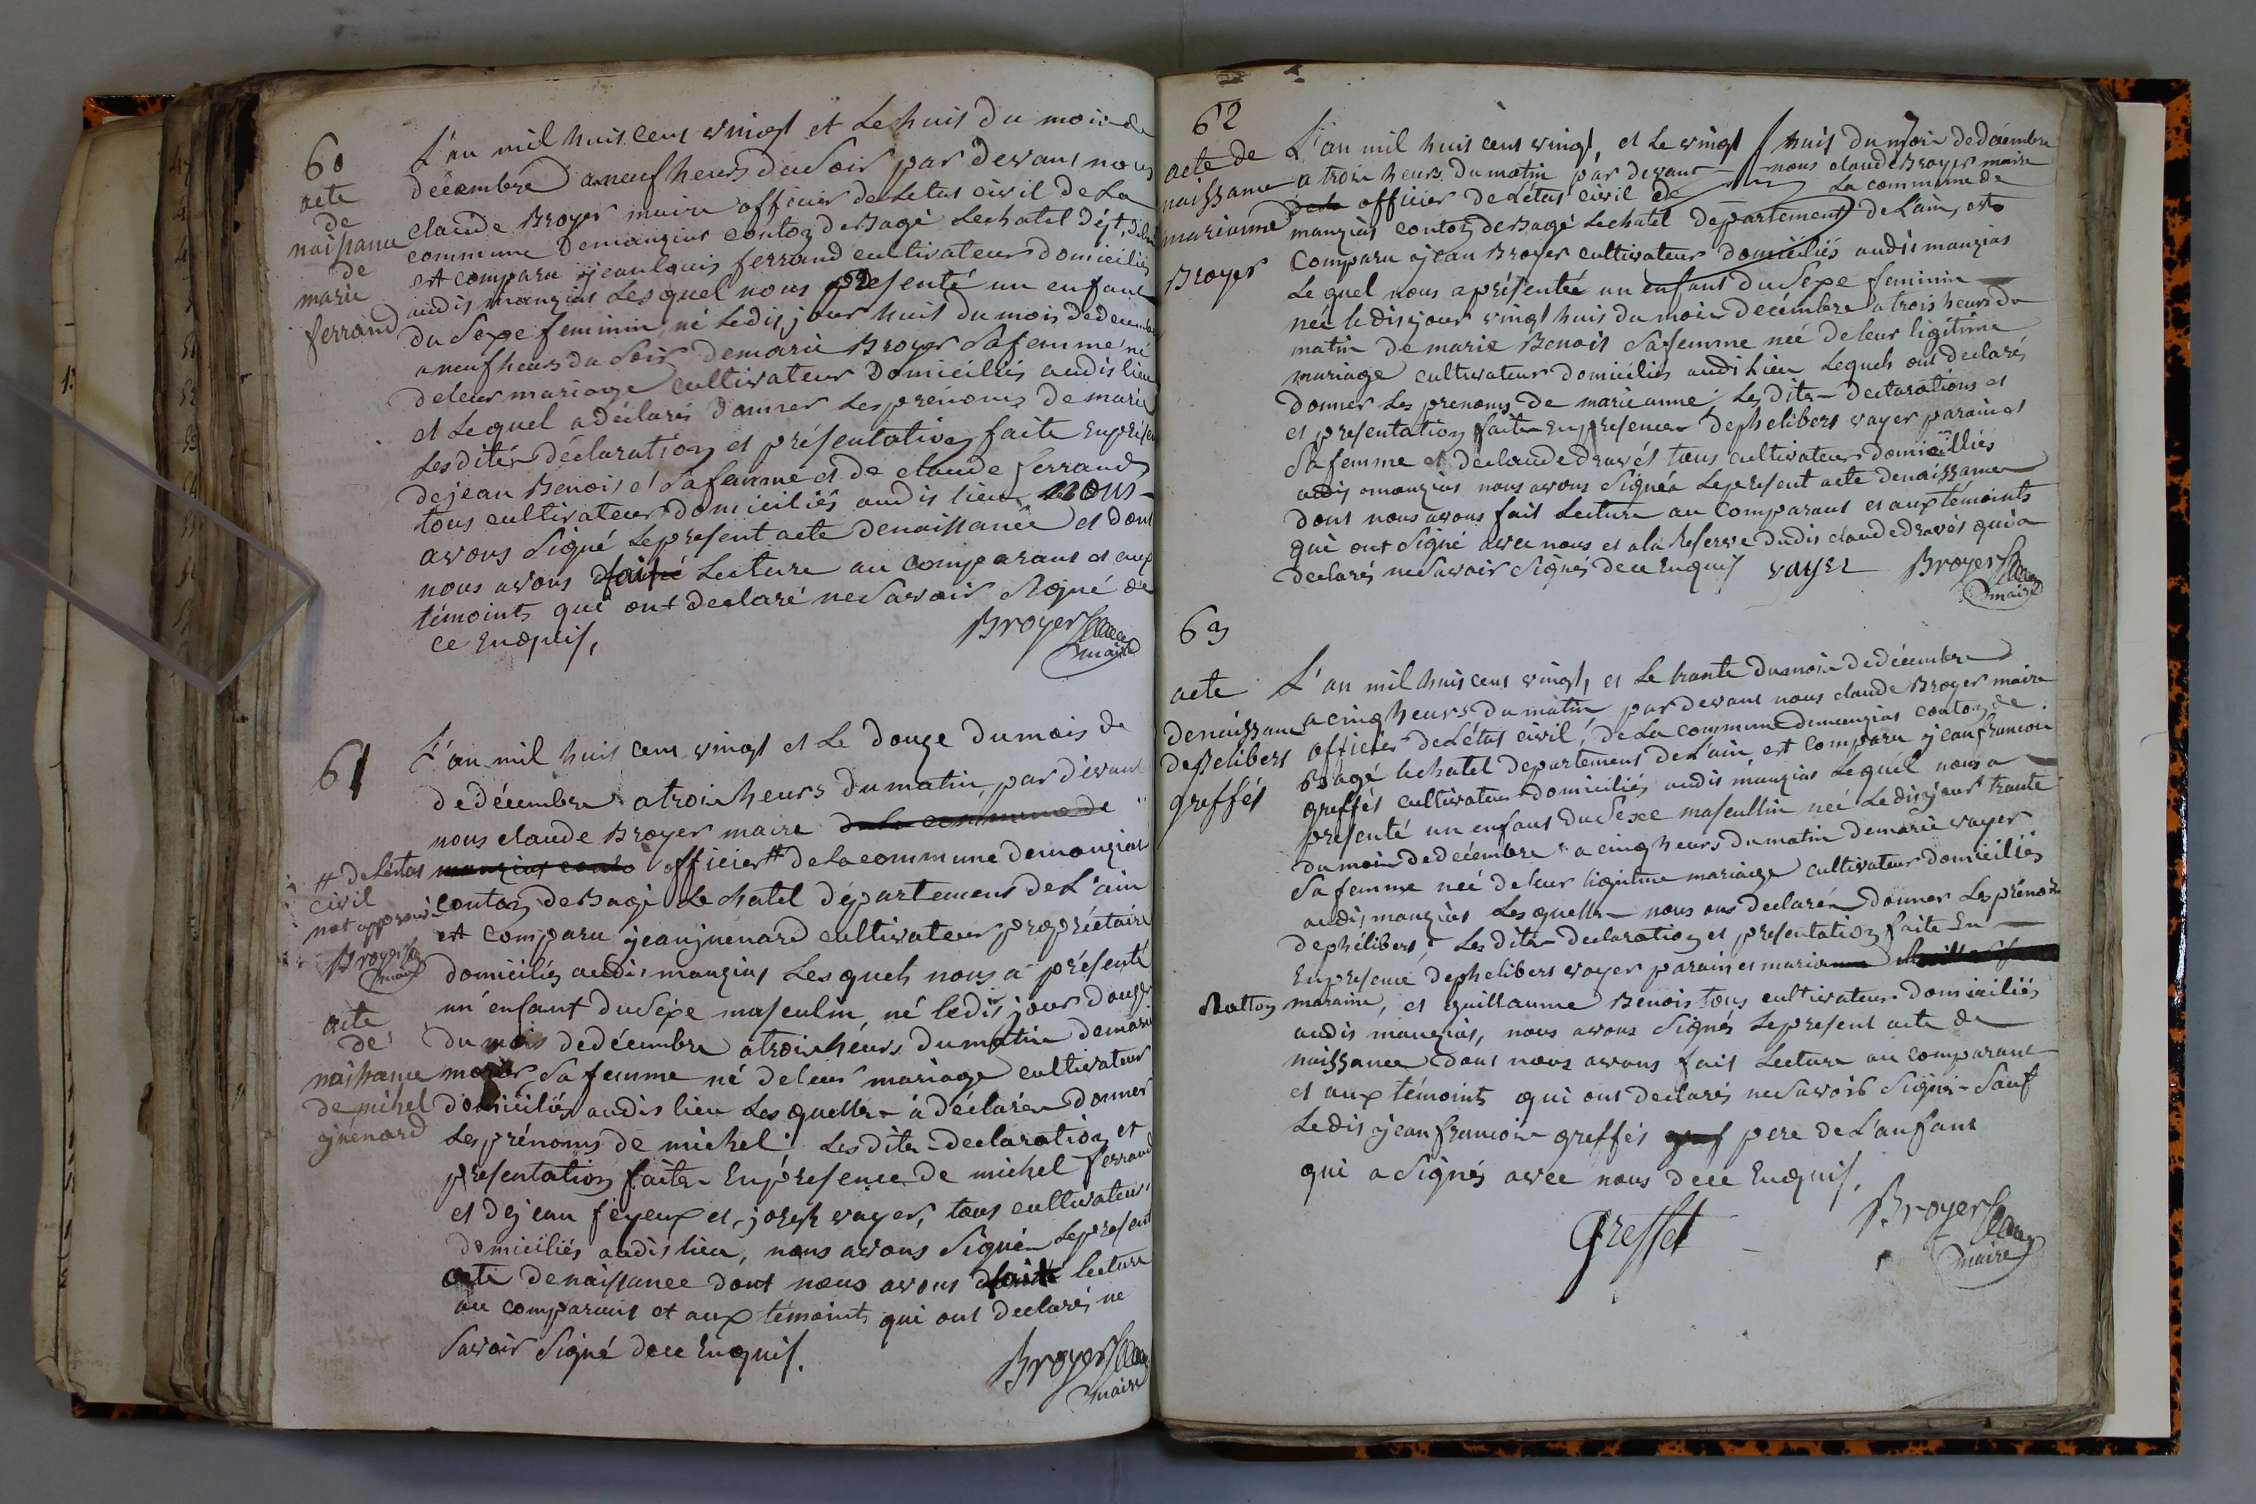 60
acte
de
naissance
de
marie
ferrand
L'an mil huit cent vingt et Le huit du mois de
décembre a neuf heurs du Soir par devant nous
claude Broyer maire officier de Létat civil de La
commune de manziat conton de Bagé Lechatel dépt. de L'ain
est comparu jean louis ferrand cultivateur domiciliés
audit manziat Lesquel nous presenté un enfant
du Sexe feminin né Ledit jour huit du mois de decembre
a neuf heurs du Soir de marie Broyer Sa femme né
de leur mariage cultivateur Domiciliés audit lieu
et Lequel a déclarés donner Les prénoms de marie
Les dites déclaration et présentation faite En présen
de jean Benoit et Sa femme et de claude ferrand
tous cultivateur domiciliés audit lieu nous
avons Signé Le present acte de naissance et dont
nous avons fait Lecture au comparant et aux
témoints qui ont declaré ne Savoir Signé de
ce Enquis.
Broyer
maire
61
L'an mil huit cent vingt et Le douze du mois de
de décembre a trois heurs du matin par devant
nous claude Broyer maire de la commune de
manziat conto officier # de La commune de manziat
# de Létat
civil
mot approuvé
Broyer
maire
conton de Bagé Lechatel département de L'ain
est comparu jean juénard cultivateur propriétaire
domiciliés audit manziat Lesquels nous a présenté
un enfant du Sexe masculin né ledit jour douze
du mois de décembre a trois heurs du matin de marie
acte
de
naissance
de mihel
juénard
Sa femme né de leur mariage cultivateur
domiciliés audit lieu Lesquelles à déclarés donner
Les prénoms de michel Les dites declaration et
presentation faites En présence de michel ferrand
et de jean feyeux et joseph vayer, tous cultivateur
domiciliés audit lieu, nous avons Signés Le present
acte de naissance dont nous avons fait lecture
au comparant et aux témoints qui ont declarés ne
Savoir Signé de ce Enquis.
Broyer
maire
62
acte de
naissance
marianne
Broyer
L'an mil huit cent vingt, et Le vingt huit du mois de décembre
a trois heurs du matin par devant nous claude Broyer maire
de la officier de Létat civil de La commune de
manziat conton de Bagé Lechatel departement de L'ain, est
comparu jean Broyer cultivateur domiciliés audit manziat
Lequel nous a présentée un enfant du Sexe feminin
née le dit jour vingt huit du mois decémbre a trois heurs du
matin de marie Benoit Sa femme née de leur ligitime
mariage cultivateur domiciliés audit lieu Lequels ont declarés
donner Les prenoms de marianne Les dites declarations et
et presentation faite En presence de phelibert vayer parain et
Sa femme et de claude dravét tous cultivateur domiciliés
audit manziat nous avons Signés Le present acte de naissance
dont nous avons fait Lecture au comparant et aux témoints
qui ont Signé avec nous et a la Reserve dudit claude dravét qui a
declarés ne Savoir Signés de ce Enquis vayer Broyer
maire
63
acte
de naissance
de felibert
greffét
L'an mil huit cent vingt, et Le trante du mois de décembre
a cinq heurs du matin par devant nous claude Broyer maire
officier de Létat civil, de La commune de manziat conton de
Bagé lechatel departement de L'ain est comparu jean francois
greffét cultivateur domiciliés audit manziat Lequel nous a
presenté un enfant du Sexe mascullin née Ledit jour trante
du mois de décembre a cinq heurs du matin de marie vayer
Sa femme née de leur ligitime mariage cultivateur domiciliés
audit manziat Lesquelles nous ont declarés donner Les prénoms
de phélibert Les dites declaration et presentation faite En
En presence de phelibert vayer parain et marianne
maraine, et guillaume Benoit tous cultivateur domiciliés
audit manziat, nous avons Signés Le present acte de
naissance dont nous avons fait Lecture au comparant
et aux témoints qui ont declarés ne Savoir Signés Sauf
Ledit jean francois greffét gref pere de L'anfant
qui a Signés avec nous de ce Enquis.
Greffet
Broyer
maire